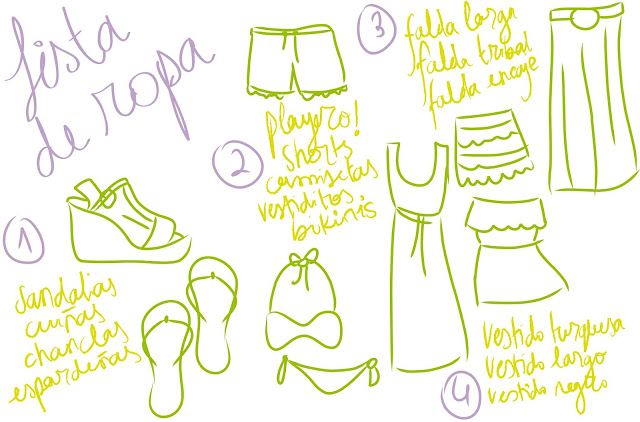 lista
de ropa
1
sandalias
cuñas
chanclas
espardeñas
2
playero!
shorts
camisetas
vestiditos
bikinis
3
falda larga
falda tribal
falda encaje
4
vestido turquesa
vestido largo
vestido negro